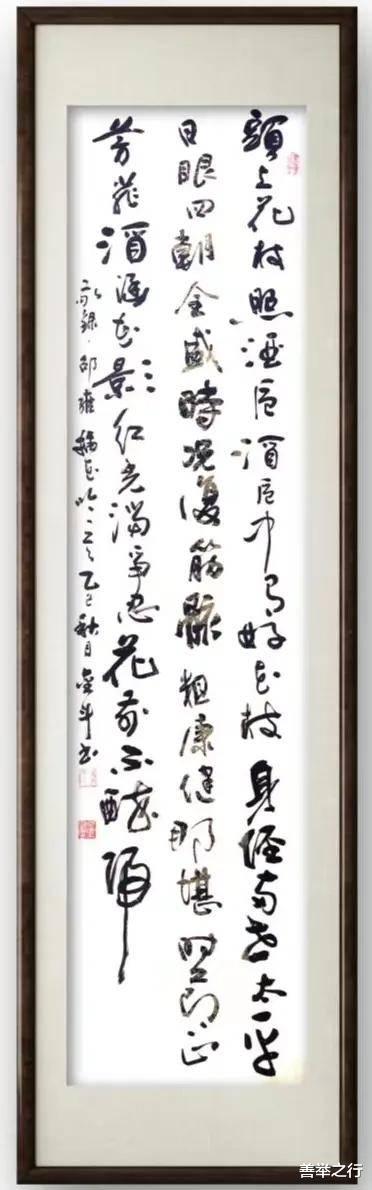 頭上花枝照酒卮酒卮中有好花枝身經兩世太平
日眼四朝全盛時況復筋骸粗康健那堪時節正
芳菲酒涵花影紅光溜爭忍花前不醉歸
録邵雍插花吟乙巳秋月書
善举之行